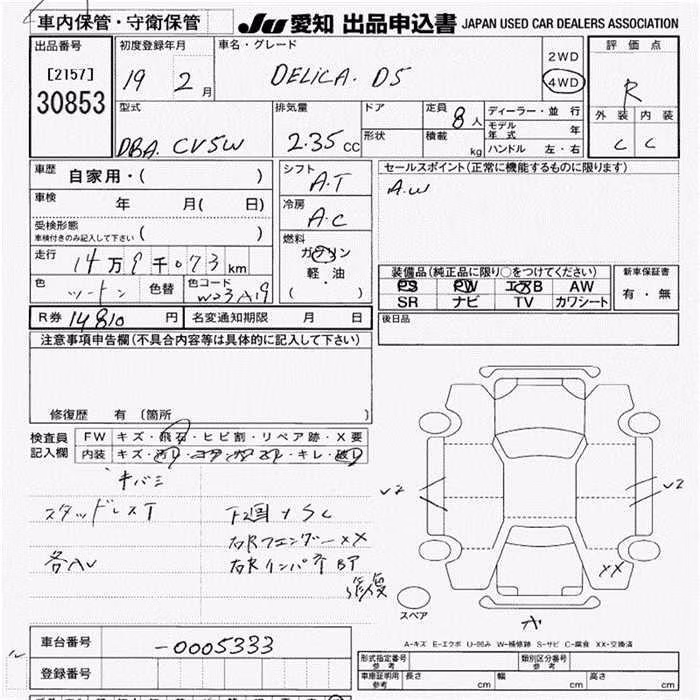 車内保管・守衛保管 JU 愛知 出品申込書 JAPAN USED CAR DEALERS ASSOCIATION
出品番号 初度登録年月 車名・グレード 評価点
[2157] 30853 19 2月 DELICA. D5 2WD 4WD R
型式 排気量 ドア 定員 8人 ディーラー・並行 外装 内装
DBA. CV5W 2.35cc 形状 積載 kg モデル年式 年 C C
ハンドル 左・右
車歴 自家用・( ) シフト A.T セールスポイント(正常に機能するものに限ります)
車検 年 月( 日) 冷房 A.C A.W
受検形態 車検付きのみ記入して下さい ( ) 燃料
走行 14万9千073km ガソリン 軽・油 ( )
装備品(純正品に限り○をつけてください) 新車保証書
色 ツートン 色替 色コード W23A19 PS PW エアB AW 有・無
SR ナビ TV カワシート
R券 14810円 名変通知期限 月 日 後日品
注意事項申告欄(不具合内容等は具体的に記入して下さい)
修復歴 有 〔箇所 〕
検査員記入欄 FW キズ・飛石・ヒビ割・リペア跡・X要
内装 キズ・汚レ・コゲ・穴・スレ・キレ・破レ
キバミ
スタッドレスT 下廻サSC
右Rフェンダー XX
各ハV 右Rインパネ BP
修復
√2 √2
XX
スペア
A-キズ E-エクボ U-凹み W-補修跡 S-サビ C-腐食 XX-交換済
車台番号 -0005333 形式指定番号 参考 類別区分番号 参考
登録番号 車庫証明用 参考 長さ cm 幅 cm 高さ cm